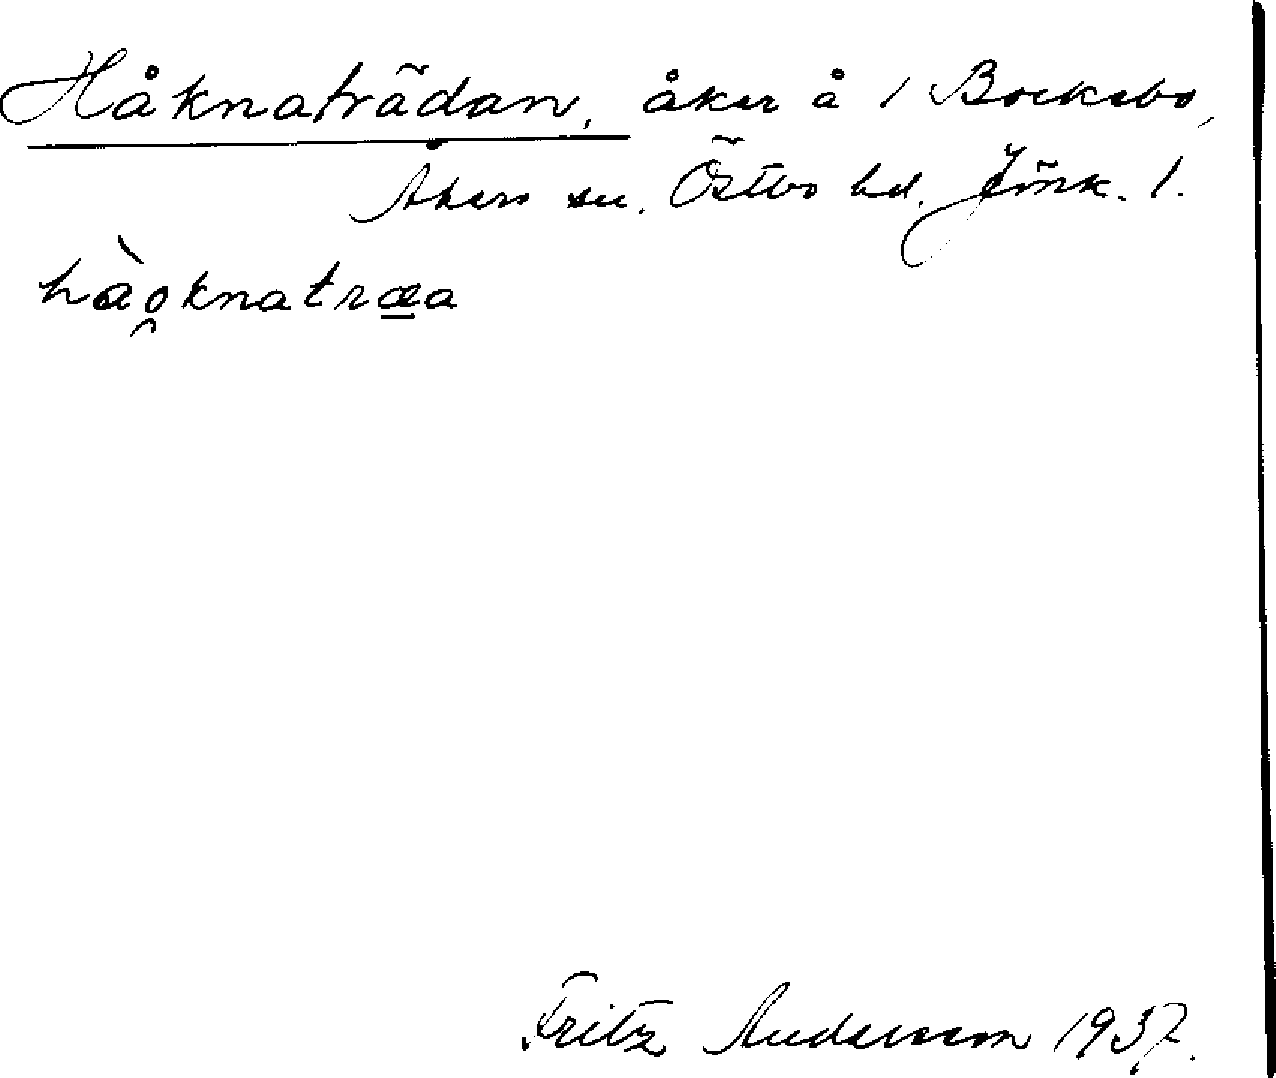 Håknaträdan, åker å 1 Bocksbo,
Åkers sn. Östbo hd. Jönk. l.
hàoknatræa
Fritz Andersson 1937.